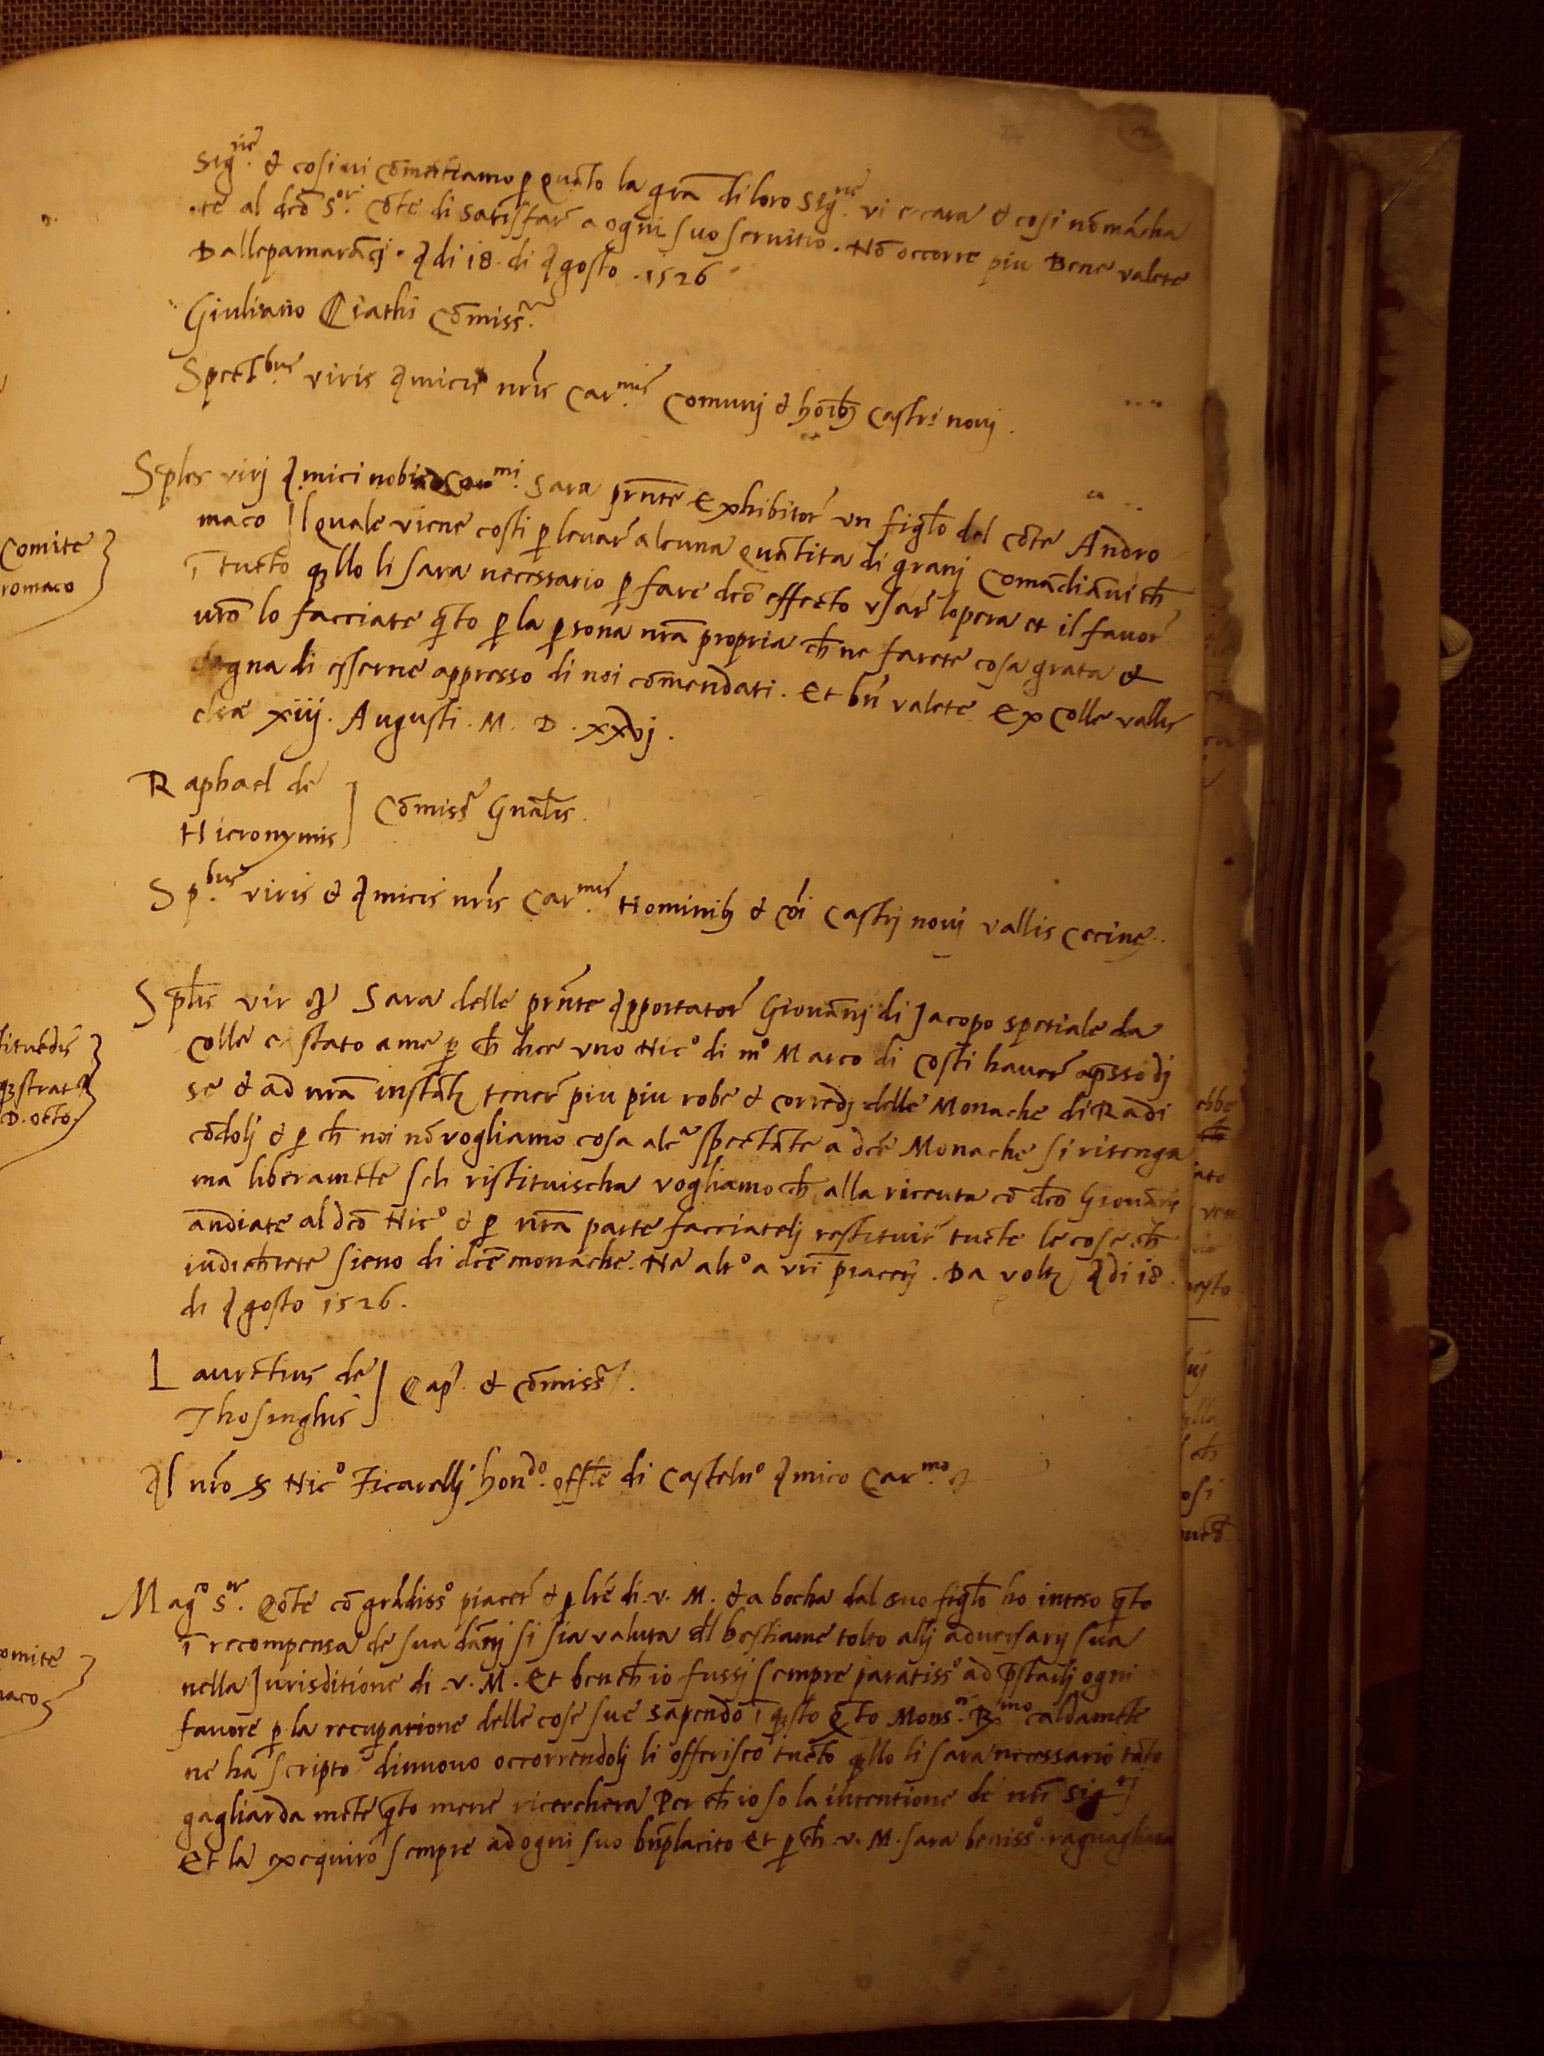 Sig.rie & cosi vi cõmettiamo p quãto la grã di loro Sig.rie vi e cara & cosi nõ mãcha
te al dcõ S.or Cõte di satisfar a ogni suo servitio. Nõ occorre piu Bene valete
Dallepamarãcj. A di 18. di Agosto. 1526
Giuliano Ciachi Cõmiss.
Spect.bus viris Amicis nr̃is Car.mis Comunj & hõib Castri novj.
Sples virj Amici nobis mi. Sara pr̃nte Exhibitor un figlo del cõte Andro
maco Il quale viene costi p levar alcuna quãtita di granj Comãdiãvi ch
ĩ tucto qllo li sara necessario p fare dcõ effecto usar lopera et il favor
vrõ lo facciate qto p la psona nrã propria ch ne farete cosa grata &
degna di esserne appresso di noi comendati. Et bñ valete Ex Colle vallis
else xiij. Augusti. M. D. xxvj.
Raphael de
Hieronymis] Cõmiss Gnãlis.
Sp.bus viris & Amicis nr̃is Car.mis Hominib & cõi Castrj novi vallis Cecine.
Splis vir & Sara delle pr̃nte Apportator Giovãnj di Jacopo spetiale da
Colle e stato a me p ch dice uno Nic.o di m.o Marco di costi haver apsso dj
se & ad nrã instãt tener piu piu robe & corredj delle Monache di Radi
cõdolj & p ch noi nõ vogliamo cosa alc.a spectãte a dcẽ Monache si ritenga
ma liberamẽte seli ristituischa vogliamo ch alla ricevuta cõ dcõ Giovãnj
ãndiate al dcõ Nic.o & p nrã parte facciatelj restituir tucte le cose ch
indicherete sieno di dcẽ monache. Ne alt.o a vr̃i piacerj. Da volt A di 18.
di Agosto 1526.
Laurẽtius de
Thosinghis] Cap. & cõmiss.
Al nrõ S Nic.o Ficarellj hon.do offle di Casteln.o Amico Car.mo &
Mag.co S.or Cõte cõ grãdiss.o piacer & p lrẽ di .v. M. & a bocha dal suo figlo ho inteso qto
ĩ recompensa de sua dãnj si sia valuta dl bestiame tolto allj adversarij sua
nella Jurisditione di .v. M. Et bench io fussi sempre paratiss.o ad pstarlj ogni
favore p la recuperatione delle cose sue sapendo ĩ qsto qto Mons.r R.mo caldamẽte
ne ha scripto dinuovo occorrendolj li offerisco tucto qllo li sara necessario tãto
gagliarda mẽte qto mene ricerchera Per ch io so la intentione de nr̃i Sig.ri
Et la exequiro sempre ad ogni suo bñplacito Et p ch .v. M. sara beniss.o raguagliata
Comite
romaco
D. octo.
omite
naco